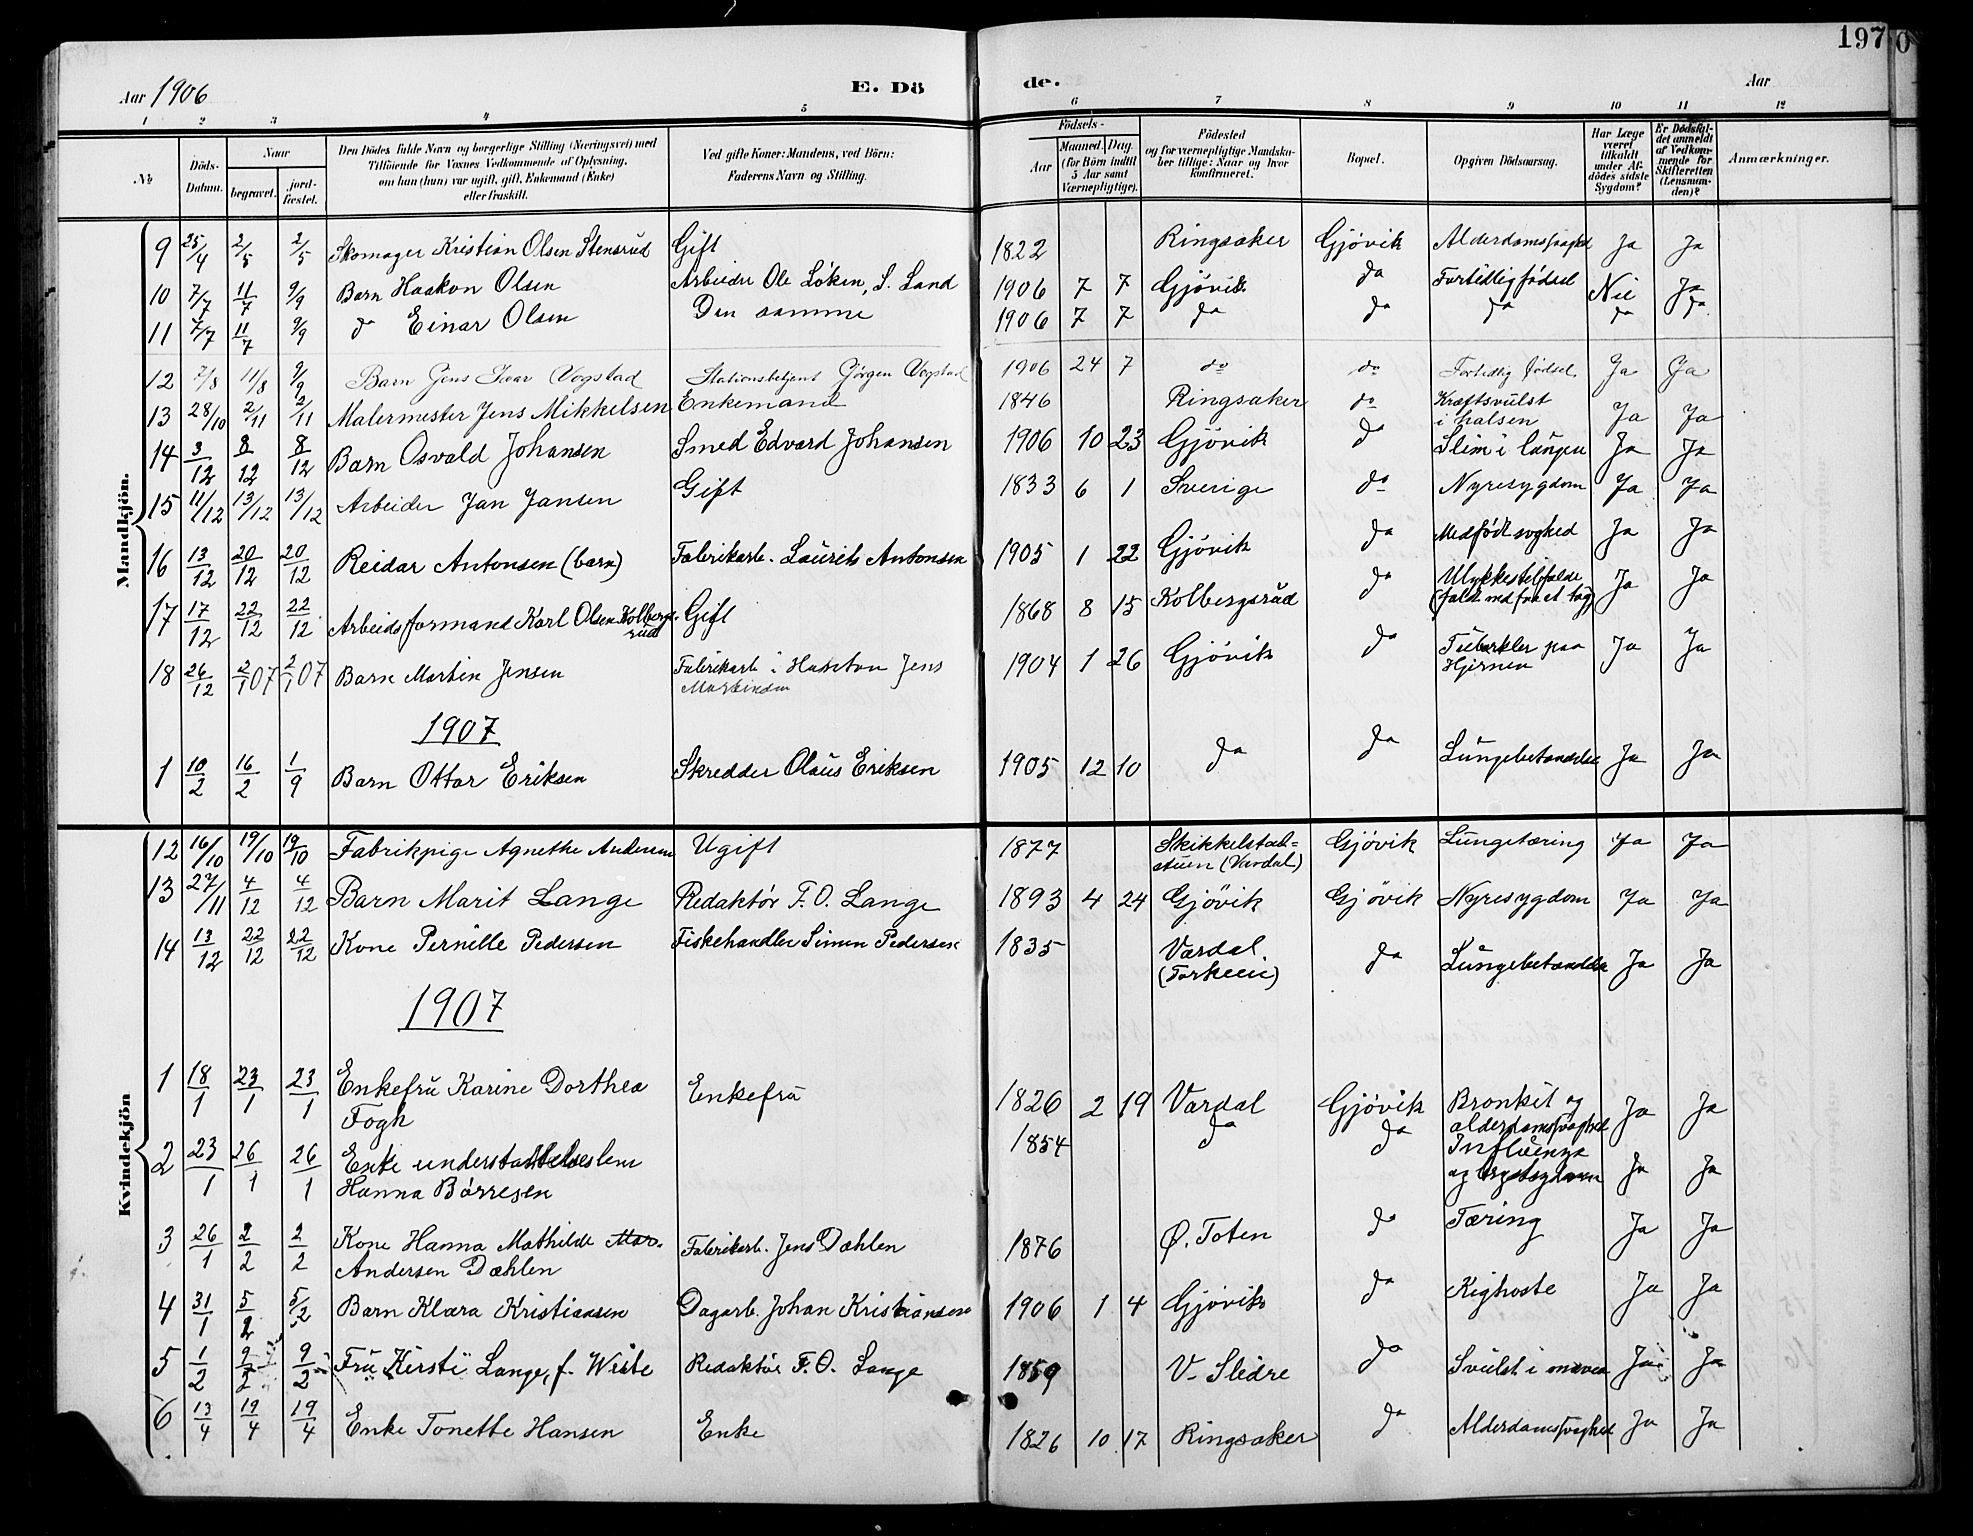 197
0
Aar 1906 E. Dö de. Aar
1 2 3 4 5 6 7 8 9 10 11 12
№
Döds-Datum.
Naar
begravet. jord-fæstet.
Den Dödes fulde Navn og borgerlige Stilling (Næringsvei) med
Tilföiende for Voxnes Vedkommende af Oplysning,
om han (hun) var ugift, gift, Enkemand (Enke)
eller fraskilt.
Ved gifte Koner: Mandens, ved Börn:
Faderens Navn og Stilling.
Födsels-
Aar
Maaned. Dag.
(for Börn indtil
5 Aar samt
Værnepligtige).
Födested
og for værnepligtige Mandska-
ber tillige: Naar og hvor
konfirmeret.
Bopæl.
Opgiven Dödsaarsag.
Har Læge
været
tilkaldt
under Af-
dödes sidste
Sygdom?
Er Dödsfal-
det anmeldt
af Vedkom-
mende for
Skifteretten
(Lensman-
den)?
Anmærkninger.
Mandkjön.
9 25/4 2/5 2/5 Skomager Kristian Olsen Stensrud Gift 1822 Ringsaker Gjövik Alderdomssvaghed Ja Ja
10 7/7 11/7 9/9 Barn Haakon Olsen Arbeider Ole Löken, S. Land 1906 7 7 Gjövik do Fortidlig födsel Nei Ja
11 7/7 11/7 9/9 do Einar Olsen Den samme 1906 7 7 do do do do do
12 7/8 11/8 9/9 Barn Jens Ivar Vogstad Stationsbetjent Jörgen Vogstad 1906 24 7 do do Fortidlig födsel. Ja Ja
13 28/10 2/11 2/11 Malermester Jens Mikkelsen Enkemand 1846 Ringsaker do Kræftsvulst
i halsen Ja Ja
14 3/12 8/12 8/12 Barn Osvald Johansen Smed Edvard Johansen 1906 10 23 Gjövik do Slim i lungen Ja Ja
15 11/12 13/12 13/12 Arbeider Jan Jansen Gift 1833 6 1 Sverige do Nyresygdom Ja Ja
16 13/12 20/12 20/12 Reidar Antonsen (barn) Fabrikarb. Laurits Antonsen 1905 1 22 Gjövik do Medfödt svghed Ja Ja
17 17/12 22/12 22/12 Arbeidsformand Karl Olsen Kolbergs-
rud Gift 1868 8 15 Kolbergsrud do Ulykkestilfælde
(fald ned fra et tag) Ja Ja
18 26/12 2/1 07 2/1 07 Barn Martin Jensen Fabrikarb i Hunton Jens
Martinsen 1904 1 26 Gjövik do Tuberkler paa
Hjernen Ja Ja
1907
1 10/2 16/2 1/9 Barn Ottar Eriksen Skredder Olaus Eriksen 1905 12 10 do do Lungebetændelse Ja Ja
Kvindekjön
12 16/10 19/10 19/10 Fabrikpige Agnethe Andersen Ugift 1877 Skikkelstad-
stuen (Vardal) Gjövik Lungetæring Ja Ja
13 27/11 4/12 4/12 Barn Marit Lange Redaktör F. O. Lange 1893 4 24 Gjövik Gjövik Nyresygdom Ja Ja
14 13/12 22/12 22/12 Kone Pernille Pedersen Fiskehandler Simen Pedersen 1835 Vardal. do Lungebetændelse Ja Ja
1907
1 18/1 23/1 23/1 Enkefru Karine Dorthea
Fogh Enkefru 1826 2 19 Vardal Gjövik Bronkit og
alderdomssvaghed Ja Ja
2 23/1 26/1 26/1 Enke understøttelseslem
Hanna Börresen 1854 do do Influenza
og Ja Ja
3 26/1 2/2 2/2 Kone Hanna Mathilde Mar.
Andersen Dæhlen Fabrikarb. Jens Dæhlen 1876 Ø. Toten do Tæring Ja Ja
4 31/1 5/2 5/2 Barn Klara Kristiansen Dagarb. Johan Kristiansen 1906 1 4 Gjövik do Kighoste Ja Ja
5 1/2 9/2 9/2 Fru Kirsti Lange, f. Redaktör F. O. Lange 1859 V. Slidre do Svulst i maven Ja Ja
6 13/4 19/4 19/4 Enke Tonette Hansen Enke 1826 10 17 Ringsaker do Alderdomssvaghed Ja Ja